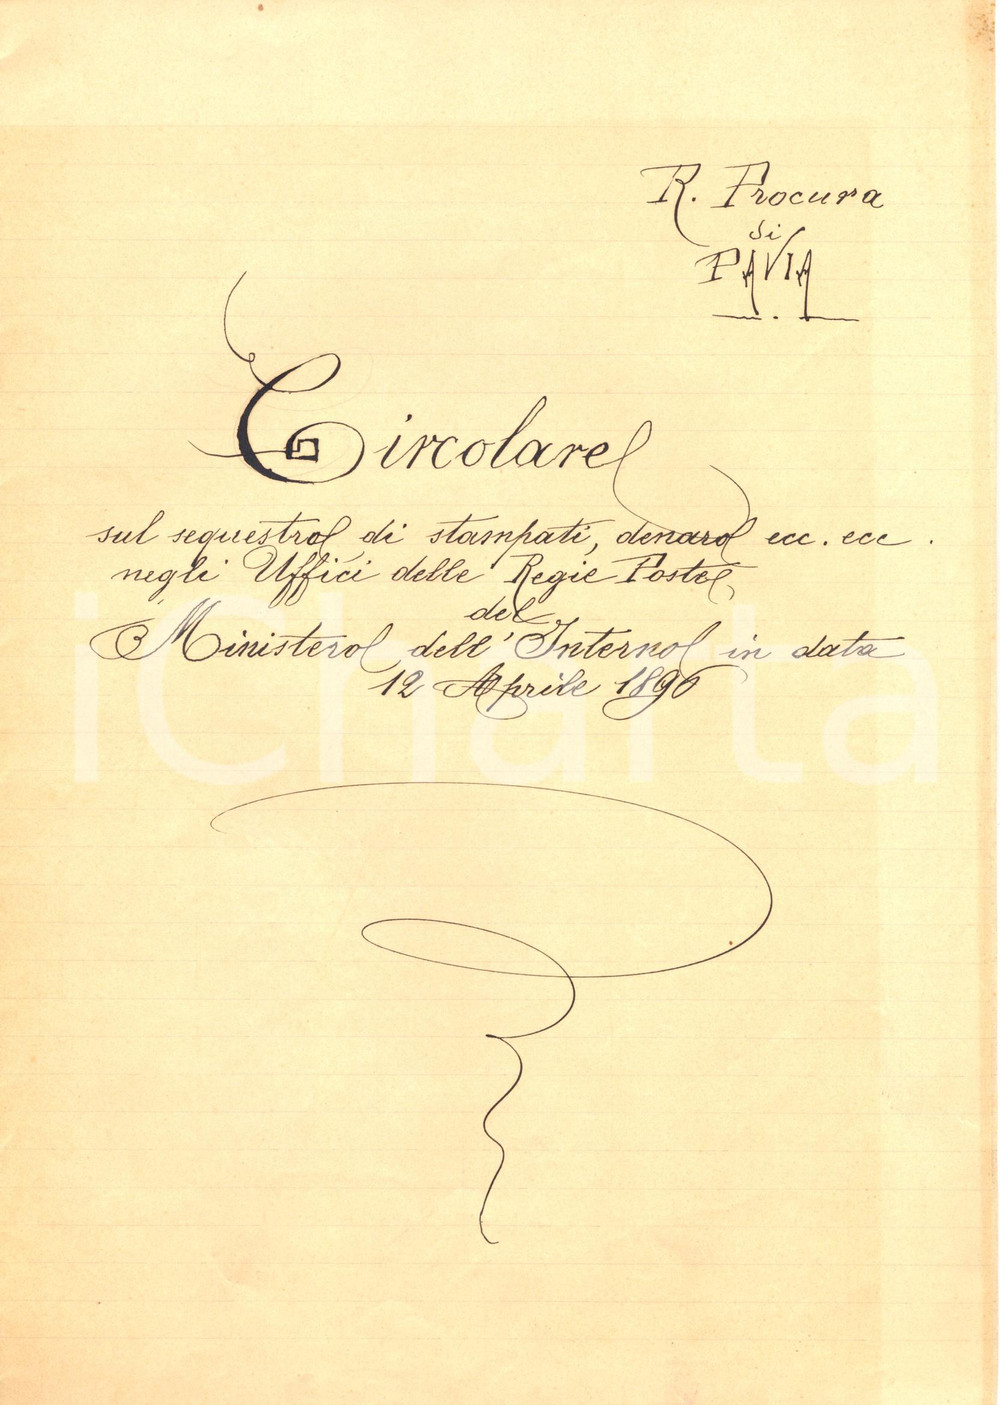 R. Procura
di
PAVIA
Circolare
sul sequestro di stampati, denaro ecc. ecc.
negli Uffici delle Regie Poste
del
Ministero dell'Interno in data
12 Aprile 1896
iCharta